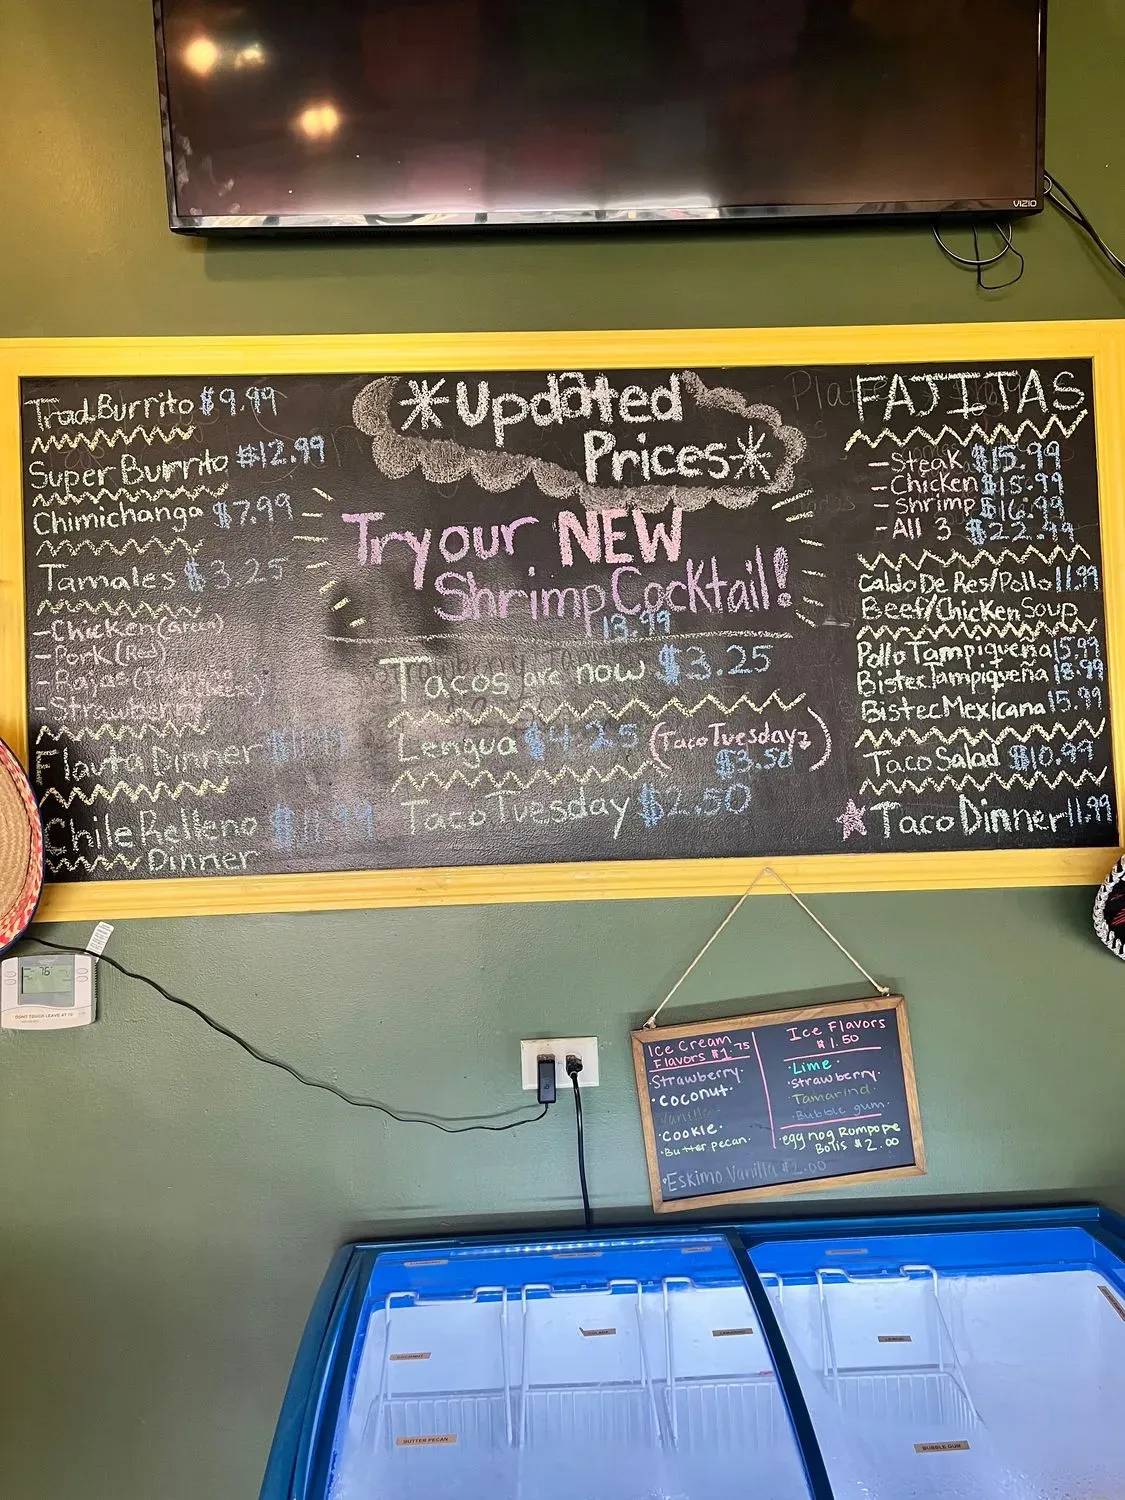 VIZIO
Trad. Burrito $9.99
Super Burrito $12.99
Chimichanga $7.99
Tamales $3.25
-Chicken (Green)
-Pork (Red)
-Rajas
-Strawberry
Flauta Dinner
Chile Relleno
Dinner
*Updated
Prices*
Try our NEW
Shrimp Cocktail!
13.99
Tacos are now $3.25
Lengua $4.25 (Taco Tuesdayz
$3.50)
Taco Tuesday $2.50
FAJITAS
-Steak $15.99
-Chicken $15.99
-Shrimp $16.99
-All 3 $22.99
Caldo De Res/Pollo 11.99
Beef/Chicken Soup
Pollo Tampiqueña 15.99
Bistec Tampiqueña 18.99
Bistec Mexicana 15.99
Taco Salad $10.99
Taco Dinner 11.99
76
DONT TOUCH LEAVE AT 70
Ice Cream
Flavors $1.75
Strawberry.
·Coconut.
Vanilla
·Cookie.
·Butter pecan.
·Eskimo Vanilla $2.00
Ice Flavors
$1.50
·Lime·
·Strawberry.
·Tamarind.
·Bubble gum.
·egg nog Rompope
Bolis $2.00
COCONUT
BUTTER PECAN
BUBBLE GUM